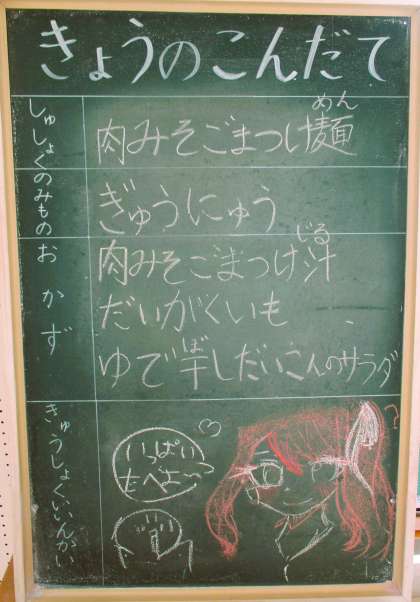 きょうのこんだて
しゅしょく
肉みそごまつけ麺
めん
のみもの
ぎゅうにゅう
おかず
肉みそごまつけ汁
じる
だいがくいも
ゆで干しだいこんのサラダ
ぼ
きゅうしょくいいんかい
いっぱい
たべよ〜
?